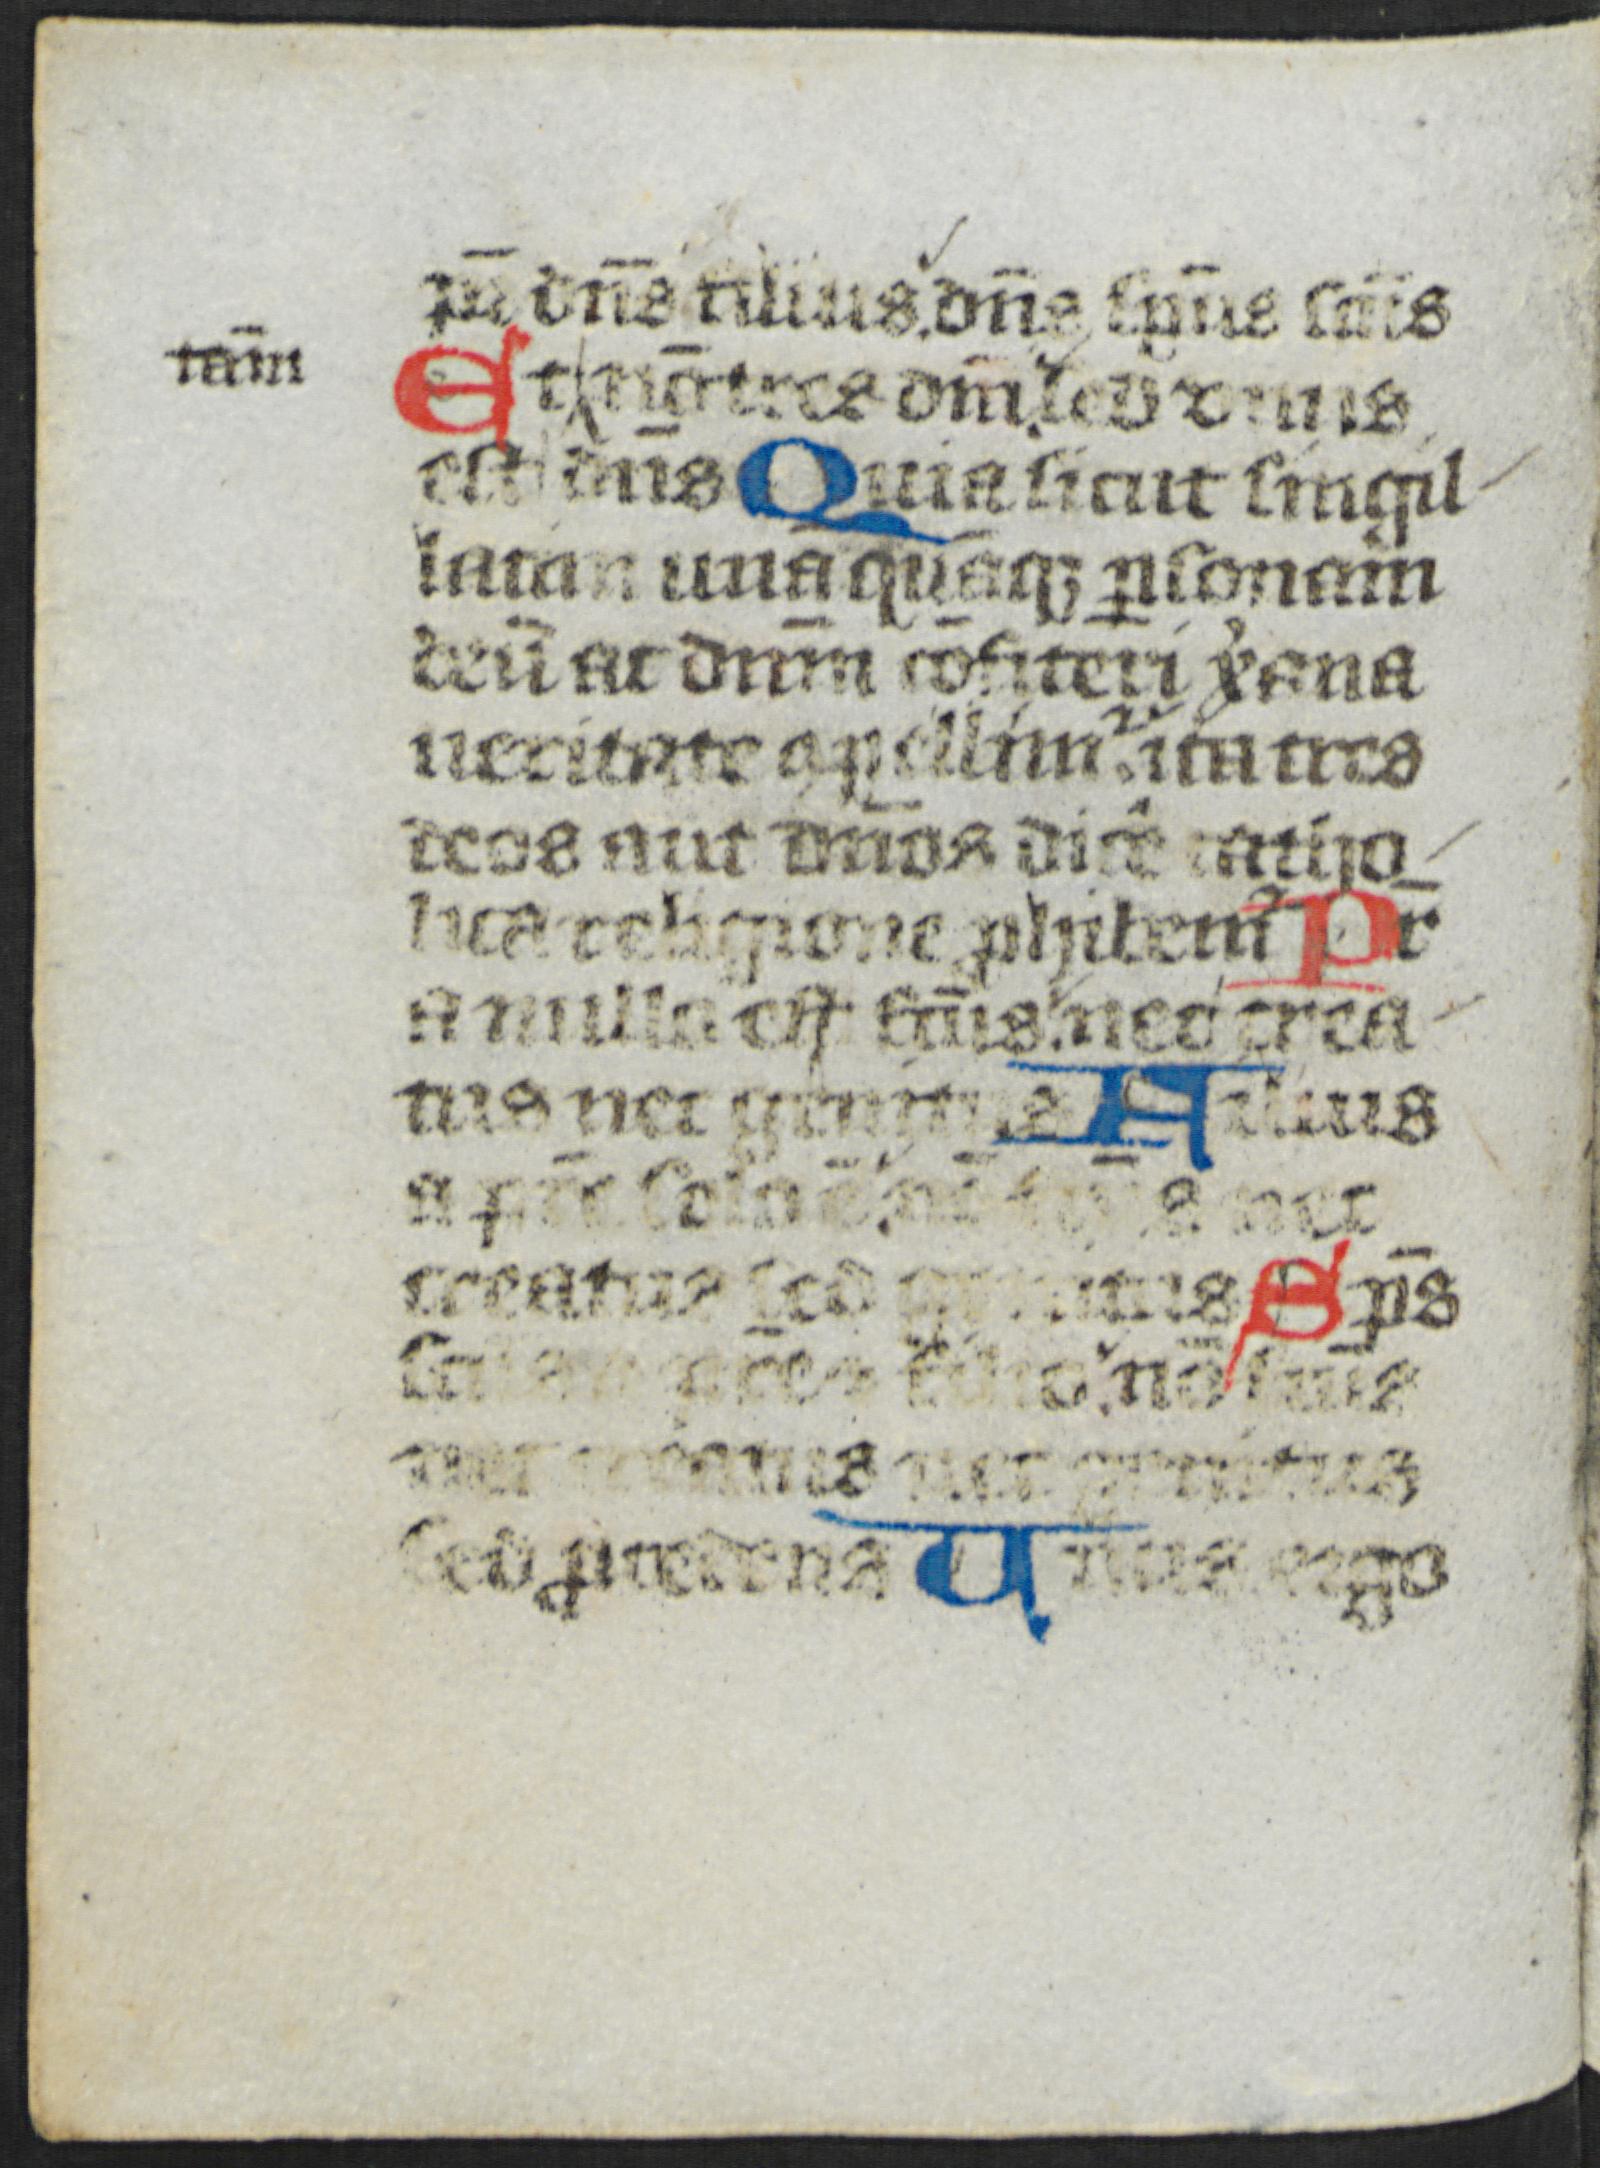 pr̄ dn̄s filius. dn̄s sp̄us sc̄us
tam̄
Et nō tres dn̄i. sed unus
est dn̄s Quia sicut singil
latim unāquāq; ꝑsonam
deū ac dn̄m cōfiteri xp̄iana
ueritate apellimur. ita tres
deos aut dn̄os dic̄e catho
lica religione ꝓhibem᷒ Pr̄
a nullo est fc̄us. nec crea
tus nec genitus Filius
a pr̄e solo ē. nō fc̄us nec
creatus sed genitus Sp̄s
sc̄us a pr̄e et filio. nō fc̄us
nec creatus nec genitus
sed ꝓcedens Unus ergo